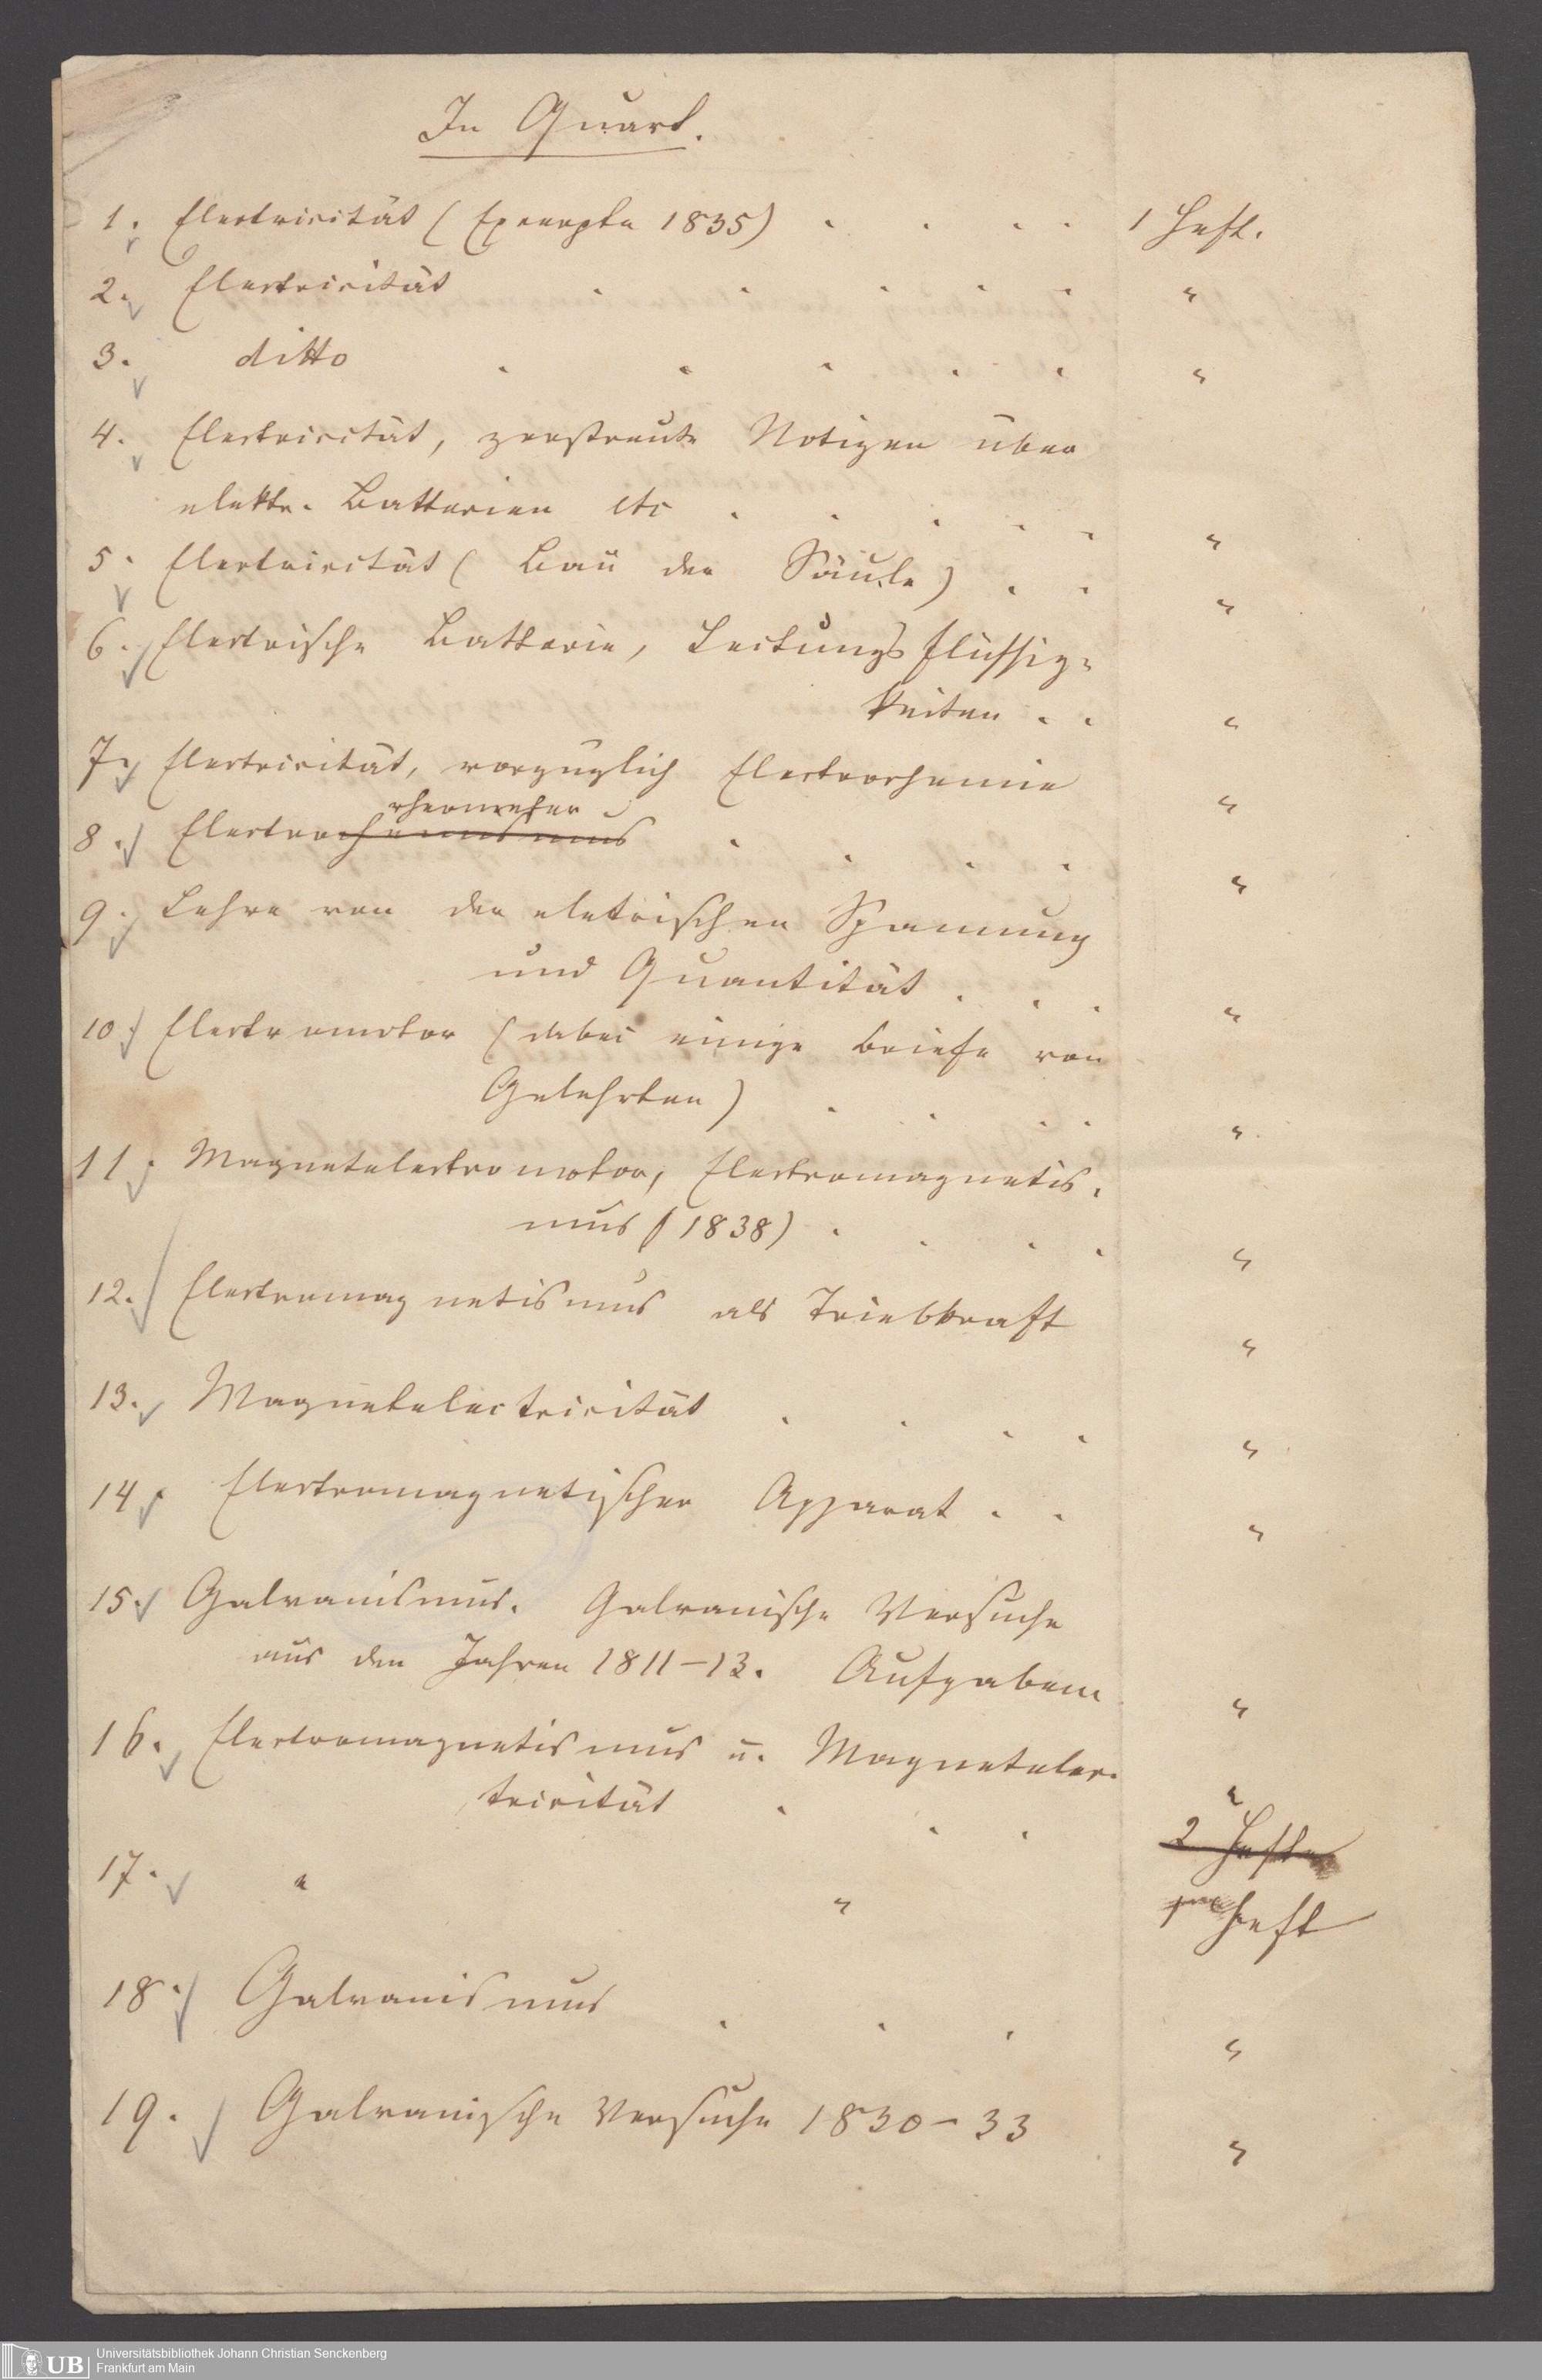 In Quart.
1. Electricität (Excerpte 1835) . . . . 1 Heft.
2. Electricität . . . . . "
3. ditto . . . . . "
4. Electricität, zerstreute Notizen über
elektr. Batterien etc . . . . . "
5. Electricität (Bau der Säule) . . "
6. Electrische Batterie, Leitungsflüssig=
keiten . . "
7. Electricität, vorzüglich Electrochemie "
8. Electrochemismus . . . . "
9. Lehre von der eletrischen Spannung
und Quantität . . . "
10. Electromotor (dabei einige Briefe von
Gelehrten) . . . . "
11. Magnetelectromotor, Electromagnetis.
mus (1838) . . . . "
12. Electromagnetismus als Triebkraft "
13. Magnetelectricität . . . . "
14. Electromagnetischer Apparat . . "
15. Galvanismus. Galvanische Versuche
aus den Jahren 1811-13. Aufgaben "
16. Electromagnetismus u. Magnetelec.
tricität . . . "
2 Hefte
17. " " 1 Heft
18. Galvanismus . . . "
19. Galvanische Versuche 1830-33 "
UB Universitätsbibliothek Johann Christian Senckenberg
Frankfurt am Main